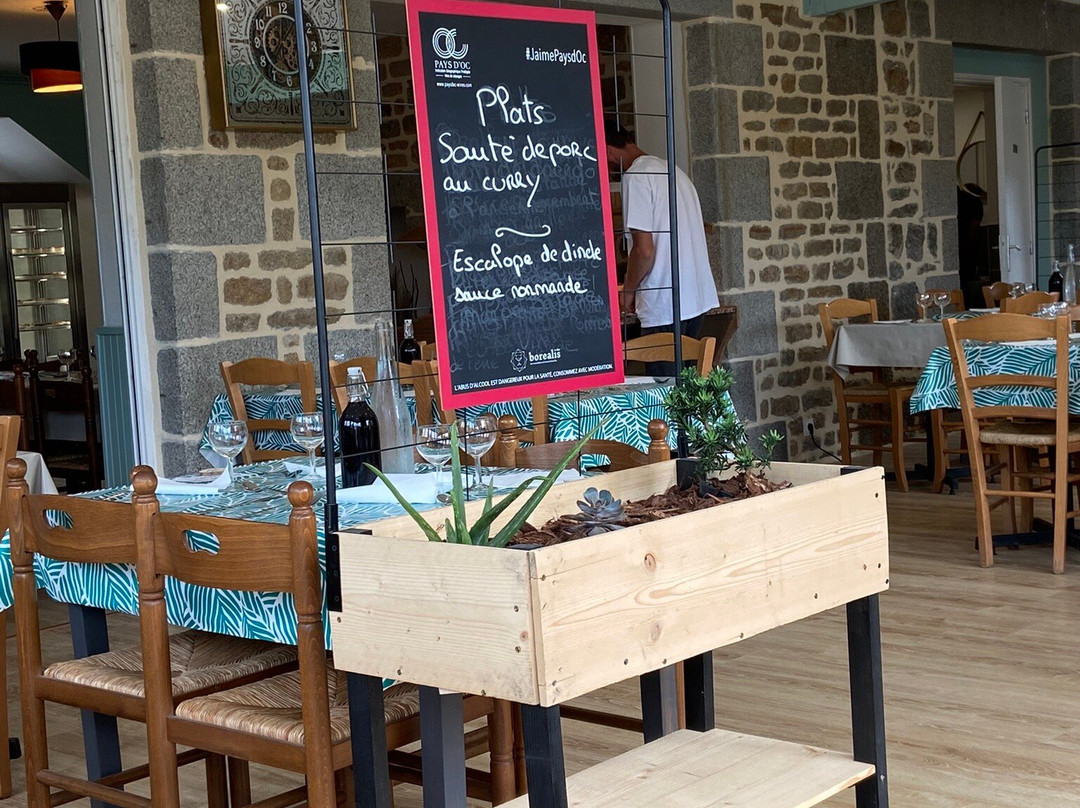 PAYS D'OC
Indication Géographique Protégée
www.paysdoc-wines.com
#JaimePaysdOc
Plats
Sauté de porc
au curry
Escalope de dinde
sauce normande
borealis
L'ABUS D'ALCOOL EST DANGEREUX POUR LA SANTÉ, CONSOMMEZ AVEC MODÉRATION.